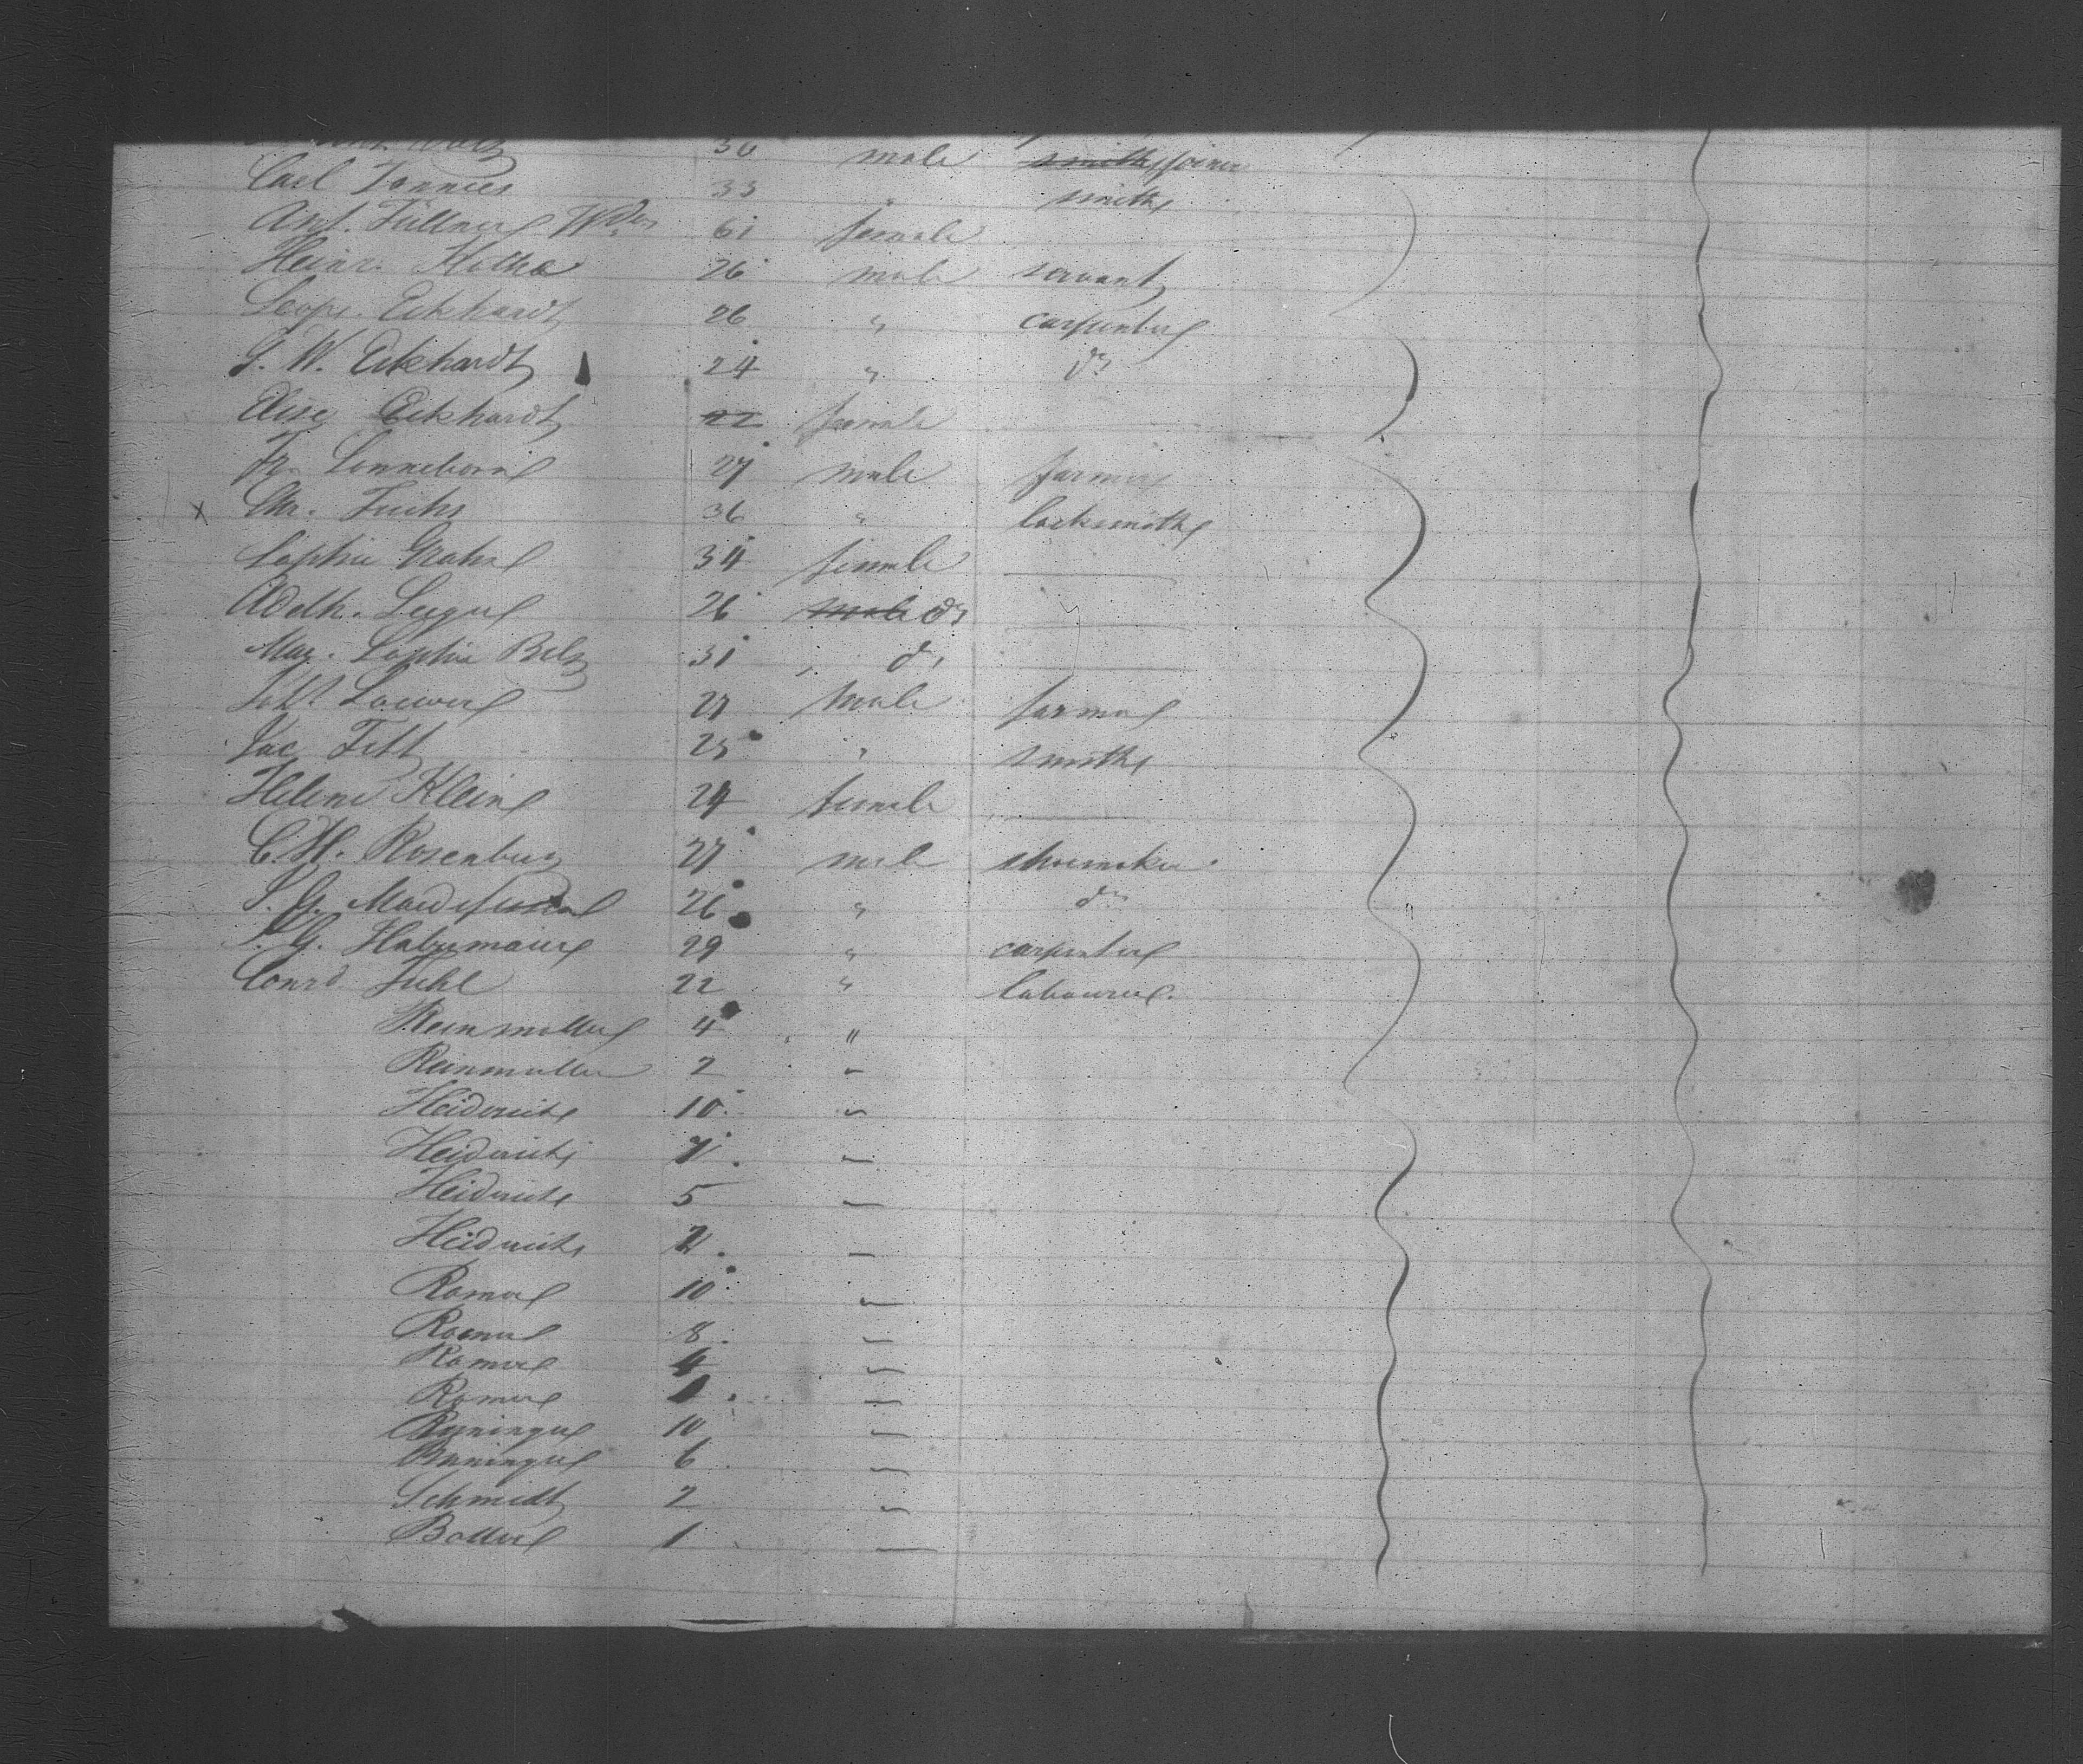 30 male smith joiner
Carl Tonnies 33 " smith
Ant. Füllner 61 female
Heinr. 26 male servant
Leop. Eckhardt 26 " carpenter
G. W. Eckhardt 24 " do
Elise Eckhardt 22 female
Fr. Sonneborn 27 male farmer
x Chr. Fuchs 36 " locksmith
Sophie Grahn 34 female
Adelh. 26 male do
Mar. Sophie Belz 31 " do
Joh. Loewer 27 male farmer
Jac. Fett 25 " smith
Helene Klein 24 female
C. H. Rosenburg 27 male shoemaker
26 " do
J. G. Habermaier 29 " carpenter
Conrd Juhl 22 " labourer.
Reinmuller 4 "
Reinmuller 2 "
Heidrich 10 "
Heidrich 7 "
Heidrich 5 "
Heidrich 2 "
Romer 10 "
Romer 8 "
Romer 4 "
Romer "
10 "
6 "
Schmidt 2 "
Boller 1 "